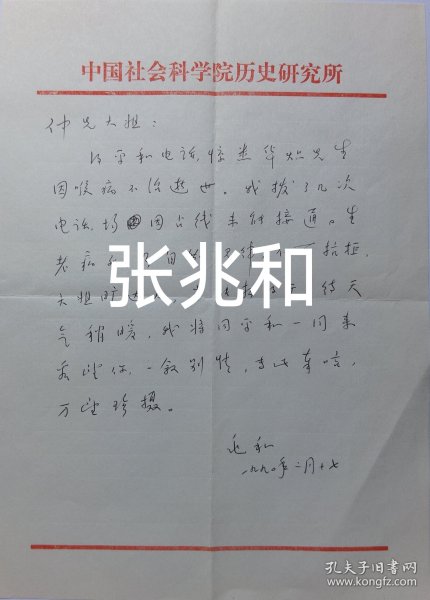 中国社会科学院历史研究所
仲兄大姐：
得平和电话，惊悉华炎先生
因喉病不治逝世。我拨了几次
电话均因占线未能接通。生
老病 自然规律 抗拒，
大姐旷达 待天
气稍暖，我将同平和一同来
看望你，一叙别情，专此奉唁，
万望珍摄。
兆和
一九九〇年二月十七
张兆和
孔夫子旧书网
www.kongfz.com